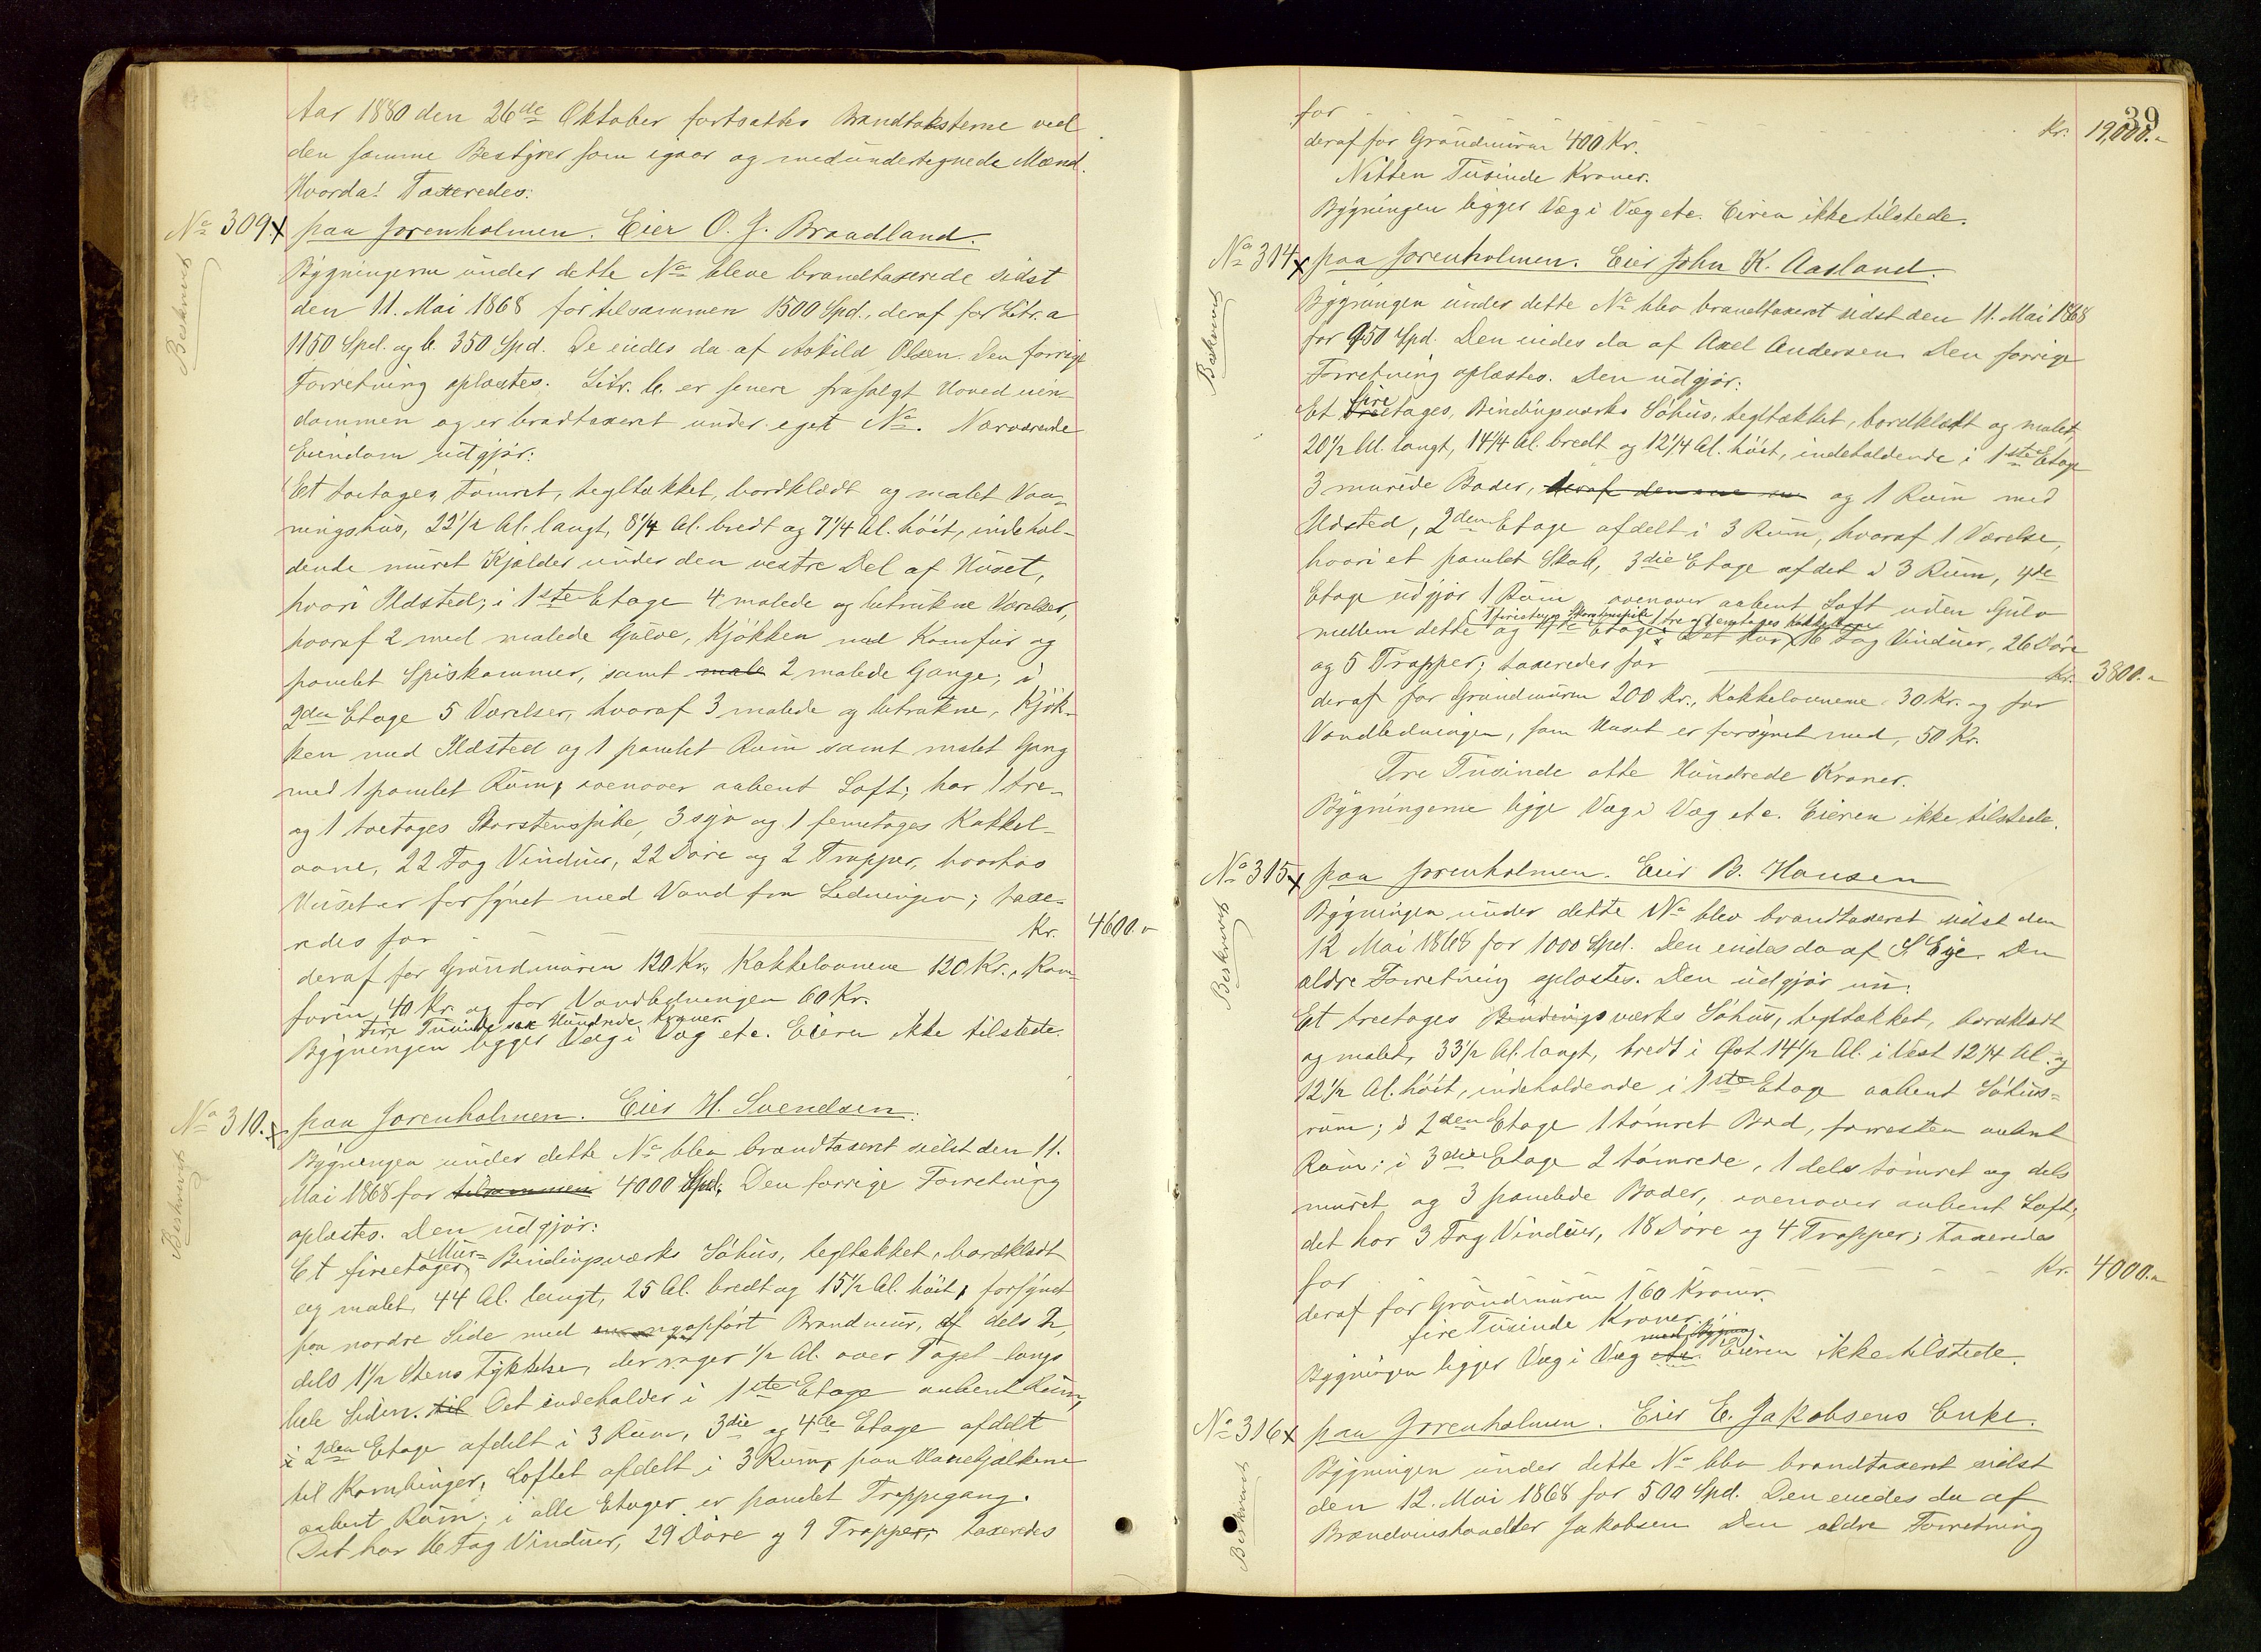 Aar 1880 den 26de Oktober fortsattes Brandtaksterne ved
den samme Bestyrer som igaar og medundertegnede Mænd.
Hvorda! Taxeredes:
No 309. x paa Jorenholmen. Eier O. J. Braadland.
Beskrevet
Bygningerne under dette No bleve brandtaxerede sidst
den 11. Mai 1868 for tilsammen 1500 Spd., deraf for Litr. a
1150 Spd. og b. 350 Spd. De eiedes da af Askild Olsen. Den forrige
Forretning oplæstes. Litr. b. er senere frasolgt Hovedeien-
dommen og er brandtaxeret under eget No. Nærværende
Eiendom udgjør:
Et toetages, tømret, tegltækket, bordklædt og malet Vaa-
ningshus, 22 1/2 Al. langt, 8 1/4 Al. bredt og 7 1/4 Al. høit, indehol-
dende muret Kjælder under den vestre Del af Huset,
hvori Ildsted; i 1ste Etage 4 malede og betrukne Værelser,
hvoraf 2 med malede Gulve, Kjøkken med Komfur og
panelet Spiskammer, samt male 2 malede Gange; i
2den Etage 5 Værelser, hvoraf 3 malede og betrukne, Kjøk-
ken med Ildsted og 1 panelet Rum samt malet Gang
med 1 panelet Rum, ovenover aabent Loft; har 1 tre-
og 1 toetages Skorstenspibe, 3 syv og 1 femetages Kakkel-
ovne, 22 Fag Vinduer, 22 Døre og 2 Trapper, hvorhos
Huset er forsynet med Vand fra Ledningen; taxe-
redes for Kr. 4600.-
deraf for Grundmuren 120 Kr., Kakkelovnene 120 Kr., Kom-
furen 40 Kr. og for Vandledningen 60 Kr.
Fire Tusinde sex Hundrede Kroner.
Bygningen ligger Væg i Væg etc. Eieren ikke tilstede.
No 310. x paa Jorenholmen. Eier H. Svendsen.
Beskrevet
Bygningen under dette No blev brandtaxeret sidst den 11.
Mai 1868 for tilsammen 4000 Spd. Den forrige Forretning
oplæstes. Den udgjør:
Et fireetages, Mur- Bindingsværks Søhus, tegltækket, bordklædt
og malet, 44 Al. langt, 25 Al. bredt og 15 1/2 Al. høit, forsynet
paa nordre Side med opført Brandmur, af dels 2,
dels 1 1/2 Stens Tykkelse, der rager 1/2 Al. over Taget langs
hele Siden. til Det indeholder i 1ste Etage aabent Rum,
i 2den Etage afdelt i 3 Rum, 3die og 4de Etage afdelt
til Kornbinger, Loftet afdelt i 3 Rum, paa Hanebjælkene
aabent Rum; i alle Etager er panelet Trappegang.
Det har 16 Fag Vinduer, 29 Døre og 9 Trapper; taxeredes
39
for Kr. 19,000.-
deraf for Grundmuren 400 Kr.
Nitten Tusinde Kroner.
Bygningen ligger Væg i Væg etc. Eieren ikke tilstede.
No 314 x paa Jorenholmen. Eier John K. Aasland.
Beskrevet
Bygningen under dette No blev brandtaxeret sidst den 11. Mai 1868
for 950 Spd. Den eiedes da af Axel Andersen. Den forrige
Forretning oplæstes. Den udgjør:
fire
Et treetages, Bindingsværks Søhus, tegltækket, bordklædt og malet,
20 1/2 Al. langt, 14 1/4 Al. bredt og 12 1/4 Al. høit, indeholdende i 1ste Etage
3 murede Boder, deraf den ene og 1 Rum med
Ildsted, 2den Etage afdelt i 3 Rum, hvoraf 1 Værelse,
hvori et panelet Skab, 3die Etage afdelt i 3 Rum, 4de
Etage udgjør 1 Rum, ovenover aabent Loft uden Gulv
1 fireetages Skorstenspibe, 1 tre og femetages Kakkelovne
mellem dette og 4de Etage. Det har 16 Fag Vinduer, 26 Døre
og 5 Trapper; taxeredes for Kr. 3800.-
deraf for Grundmuren 200 Kr., Kakkelovnene 30 Kr. og for
Vandledningen, som Huset er forsynet med, 50 Kr.
Tre Tusinde otte Hundrede Kroner.
Bygningerne ligge Væg i Væg etc. Eieren ikke tilstede.
No 315 x paa Jorenholmen. Eier B. Hansen
Beskrevet
Bygningen under dette No blev brandtaxeret sidst den
12 Mai 1868 for 1000 Spd. Den eiedes da af S. Eye. Den
ældre Forretning oplæstes. Den udgjør nu:
Et treetages Bindingsværks Søhus, tegltækket, bordklædt
og malet, 33 1/2 Al. langt, bredt i Øst 14 1/2 Al. i Vest 12 1/4 Al. og
12 1/2 Al. høit, indeholdende i 1ste Etage aabent Søhus-
rum; i 2den Etage 1 tømret Bod, forresten aabent
Rum; i 3die Etage 2 tømrede, 1 dels tømret og dels
muret og 3 panelede Boder, ovenover aabent Loft;
det har 3 Fag Vinduer, 18 Døre og 4 Trapper; taxeredes
for Kr. 4000.-
deraf for Grundmuren 160 Kroner.
fire Tusinde Kroner.
Bygningen ligger Væg i Væg etc. Eieren ikke tilstede.
No 316 x paa Jorenholmen. Eier E. Jakobsens Enke.
Beskrevet
Bygningen under dette No blev brandtaxeret sidst
den 12. Mai 1868 for 500 Spd. Den eiedes da af
Brændevinshandler Jakobsen. Den ældre Forretning